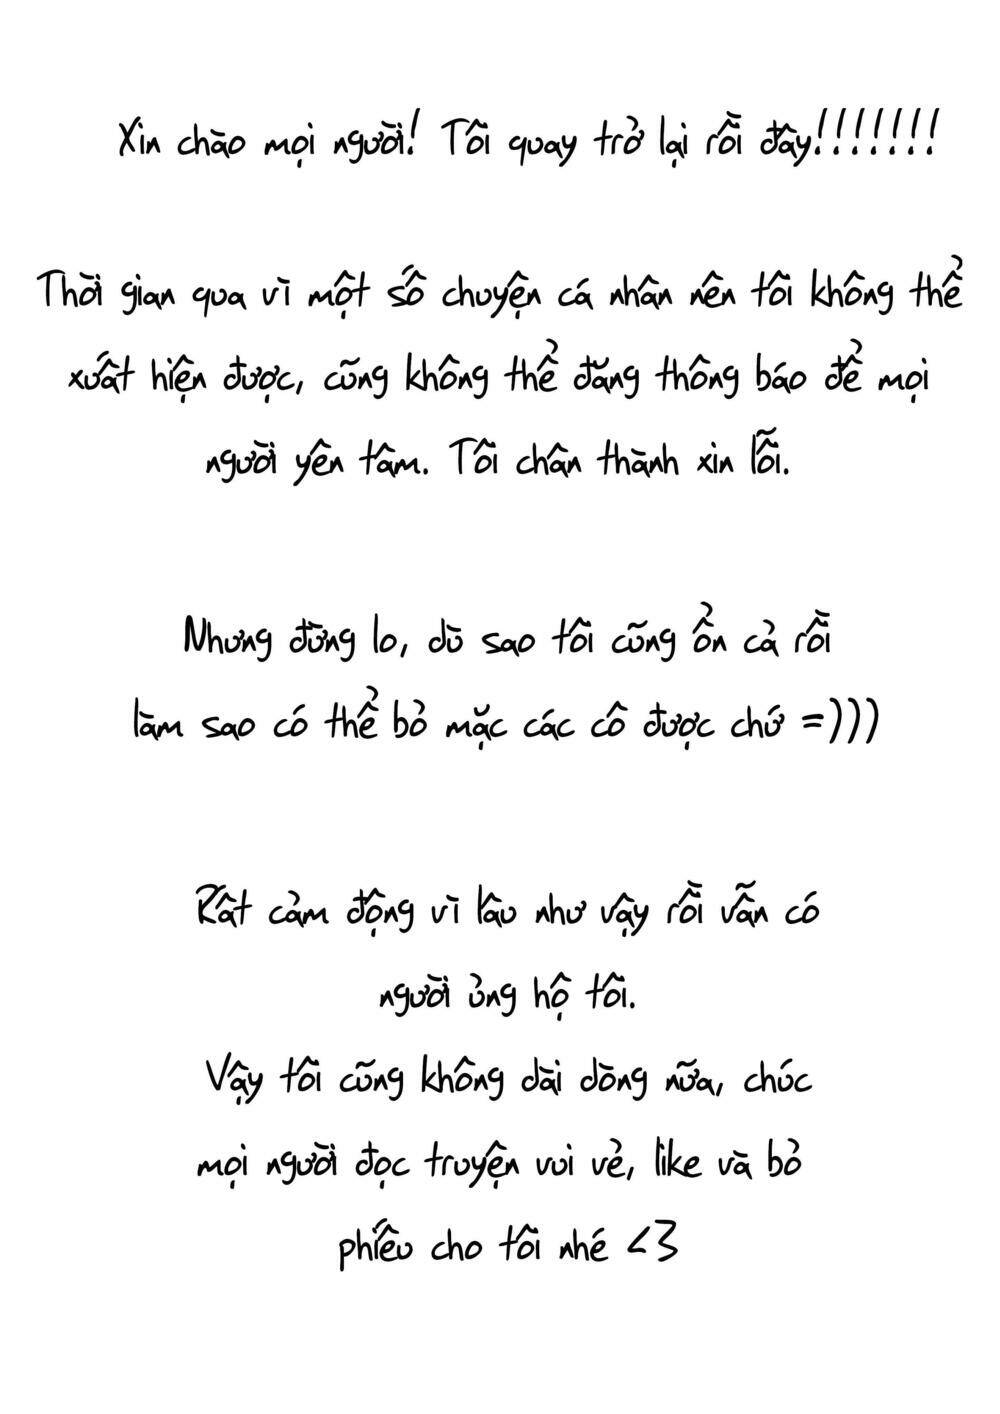 Xin chào mọi người! Tôi quay trở lại rồi đây!!!!!!!
Thời gian qua vì một số chuyện cá nhân nên tôi không thể
xuất hiện được, cũng không thể đăng thông báo để mọi
người yên tâm. Tôi chân thành xin lỗi.
Nhưng đừng lo, dù sao tôi cũng ổn cả rồi
làm sao có thể bỏ mặc các cô được chứ =)))
Rất cảm động vì lâu như vậy rồi vẫn có
người ủng hộ tôi.
Vậy tôi cũng không dài dòng nữa, chúc
mọi người đọc truyện vui vẻ, like và bỏ
phiếu cho tôi nhé <3